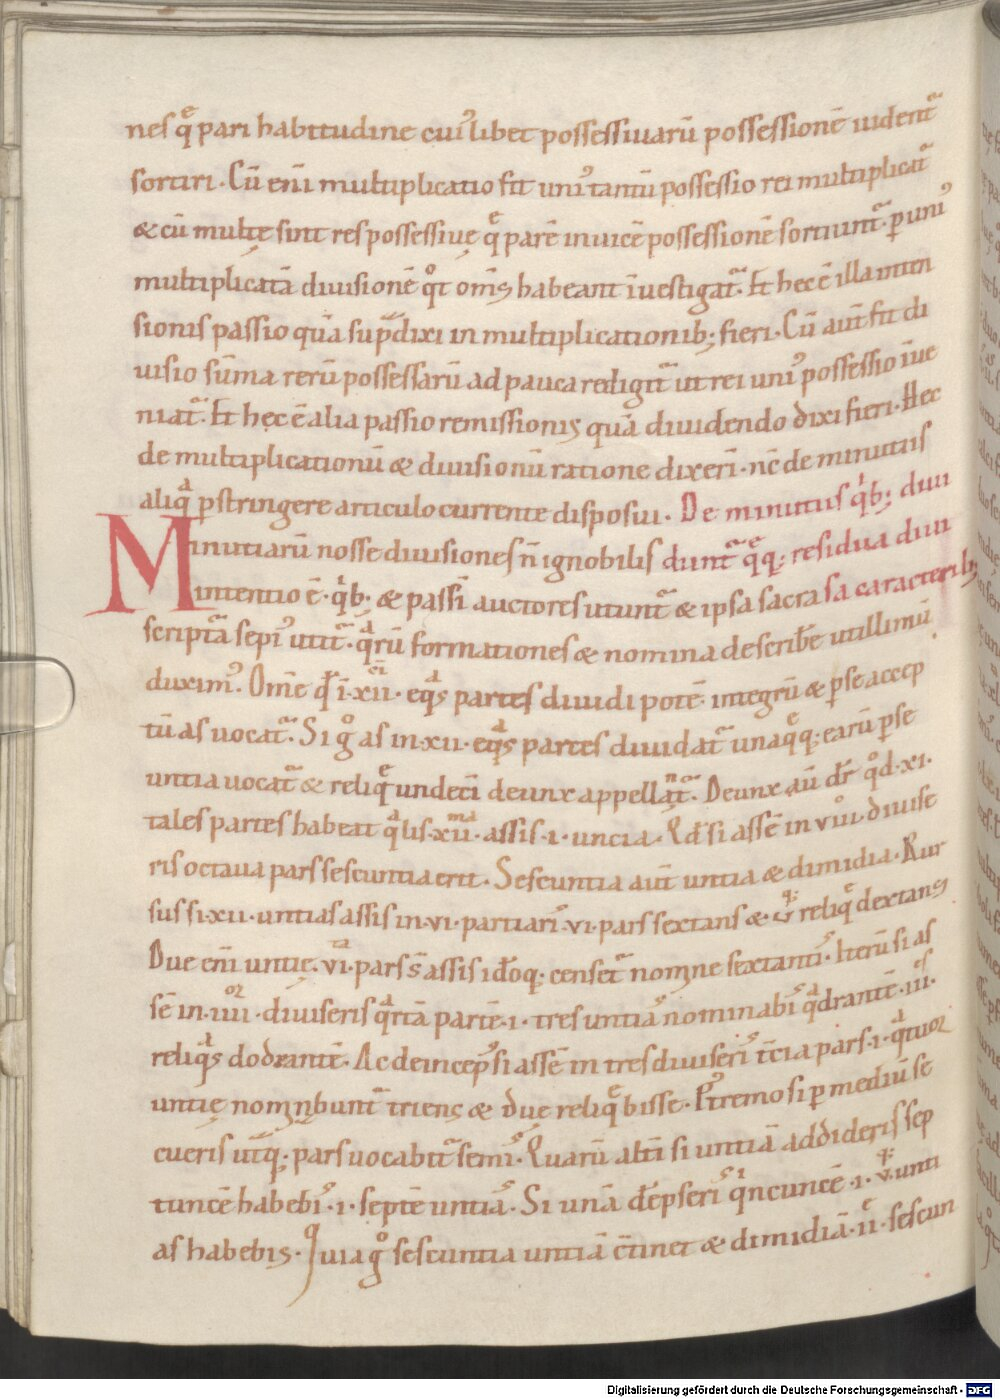 nes q̄ pari habitudine cuiꝰlibet possessiuarū possessionē uident᷑
sortiri. Cū eni multiplicatio fit uniꝰ tantū possessio rei multiplicat᷑
& cū multę sint res possessiuę q̄ parē inuicē possessionē sortiunt᷑. ꝑ uniꝰ
multiplicatā diuisionē qͦt om̄s habeant īuestigat᷑. Et hec ē illa inten
sionis passio quā sup̄dixi in multiplicationib; fieri. Cū aūt fit di
uisio sūma rerū possessarū ad pauca redigit᷑ ut rei uniꝰ possessio īue
niat᷑. Et hęc ē alia passio remissionis quā diuidendo dixi fieri. Hec
de multiplicationū & diuisionū ratione dixerī. nc̄ de minutiis
aliqͣ ꝑstringere articulo currente disposui. De minutiis qͥb; diui
Minutiarū nosse diuisiones n̄ ignobilis dunt᷑ q̄q; residua diui
intentio ē. qͥb; & passī auctores utunt᷑ & ipsa sacra sa caracterib;
script᷑a sepiꝰ utit᷑. qͣrū formationes & nomina describ̄e utillimū
duximꝰ. Om̄e qd̄ ī .xii. eqͣs partes diuidi potē. integrū & ꝑ se accep
tū as uocat᷑. Si gͦ as in .xii. eqͣs partes diuidat᷑ unaq̄q; earū ꝑ se
untia uocat᷑ & reliq̄ undecī deunx appellant᷑. Deunx aū dr̄ qͦd .xi.
tales partes habeat qͣlis .xiiᵐᵃ. assis .i. uncia. Qd̄ si assē in viii diuise
ris octaua pars sescuntia erit. Sescuntia aūt untia & dimidia. Rur
sus si .xii. untias assis in .vi. partiarisꝰ .vi. pars sextans & reliq̄ dextans
Due eni untię .viᵗᵃ. pars s̄ assis id̄oq; censet᷑ nomine sextantisꝰ. Iterū si as
sē in .iiiiᵒʳ. diuiseris qͣrtā partē .i. tres untiasꝰ nominabisꝰ qͣdrantē .iiiᵉˢ.
reliqͣs dodrantē. Ac deincep̄s si assē in tres diuiserisꝰ t̄cia pars .i. qͣtuor
untię nominabunt᷑ triens & duę reliq̄ bisse. Pꝰtremo si ꝑ mediū se
cueris ut᷑q; pars uocabit᷑ semisꝰ. Quarū alt̄i si untiā addideris sep
tuncē habebisꝰ .i. septē untiasꝰ. Si unā dēpserisꝰ qͥncuncē .i. v. unti
as habebis. Iuia gͦ sescuntia untiā c̄tinet & dimidiā. iiᵉ. sescun
Digitalisierung gefördert durch die Deutsche Forschungsgemeinschaft - DFG